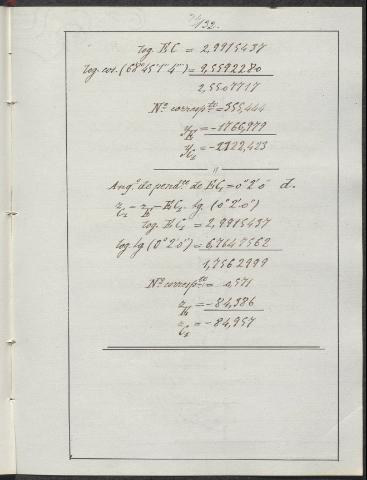 /132.
log. EC = 2,9915437
log. cos. (68°45'1"4''') = 9,5592280
2,5507717
Nº corresp.te = 355,444
y E = -1766,979
y C1 = -2122,423
Ang.º de pend.te de EC1 = 0°2'0" d.
z C1 - z E = EC1. tg. (0°2'0")
log. EC1 = 2,9915437
log. tg (0°2'0") = 6,7647562
1,7562999
Nº corresp.te = 0,571
z E = -84,386
z C1 = -84,957